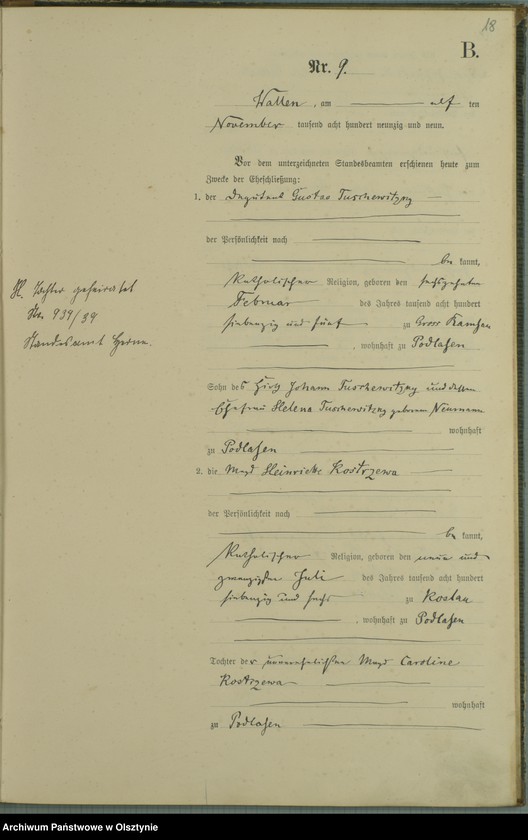 18
B.
Nr. 9.
Wallen, am elf ten
November tausend acht hundert neunzig und neun.
Vor dem unterzeichneten Standesbeamten erschienen heute zum
Zwecke der Eheschließung:
1. der Gustav Tuschewitzny
der Persönlichkeit nach
be kannt,
katholischer Religion, geboren den sechszehnten
Februar des Jahres tausend acht hundert
siebenzig und fünf zu Gross
, wohnhaft zu Podlasen
Sohn des Hirt Johann Tuschewitzny und dessen
Ehefrau Helena Tuschewitzny geborenen Neumann
wohnhaft
zu Podlasen
2. die Magd Heinriette Kostrzewa
der Persönlichkeit nach
be kannt,
katholischer Religion, geboren den neun und
zwanzigsten Juli des Jahres tausend acht hundert
siebenzig und sechs zu Kostau
, wohnhaft zu Podlasen
Tochter der unverehelichten Magd Caroline
Kostrzewa
wohnhaft
zu Podlasen
Tochter geheiratet
No. 939/39
Standesamt Herne.
Archiwum Państwowe w Olsztynie